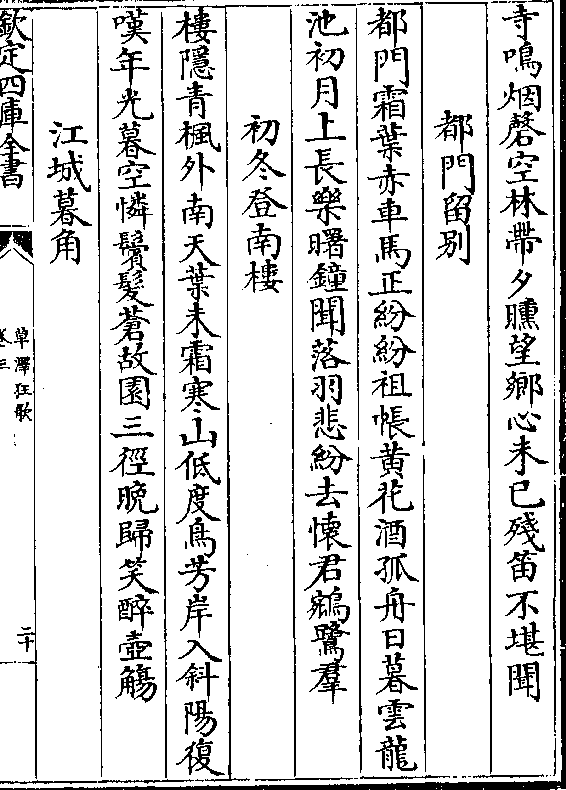 寺鳴烟磬空林帶夕曛望鄉心未已殘笛不堪聞
都門留別
都門霜葉赤車馬正紛紛祖帳黄花酒孤舟日暮雲龍
池初月上長樂曙鐘聞落羽悲紛去懷君鵷鷺羣
初冬登南樓
樓隱青楓外南天葉未霜寒山低度鳥芳岸入斜陽復
嘆年光暮空憐鬢髮蒼故園三徑晚歸笑醉壺觴
江城暮角
欽定四庫全書
草澤狂歌
卷三
二十